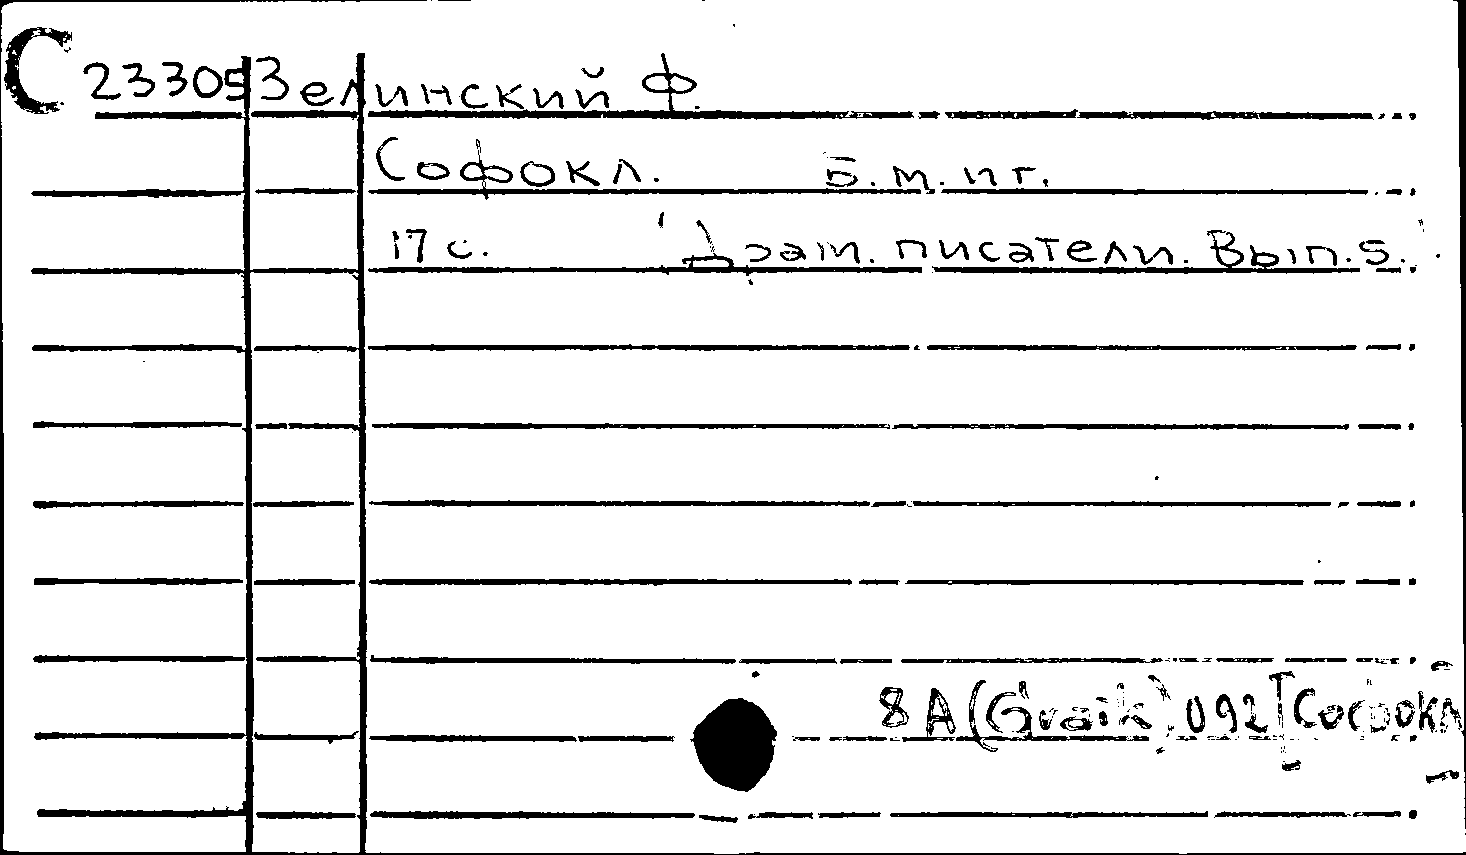 С 23305 Зелинский Ф.
Софокл. Б.м.иг.
17 с. Драм. писатели. Вып. 5.
8А(Graik).092[Софокл]